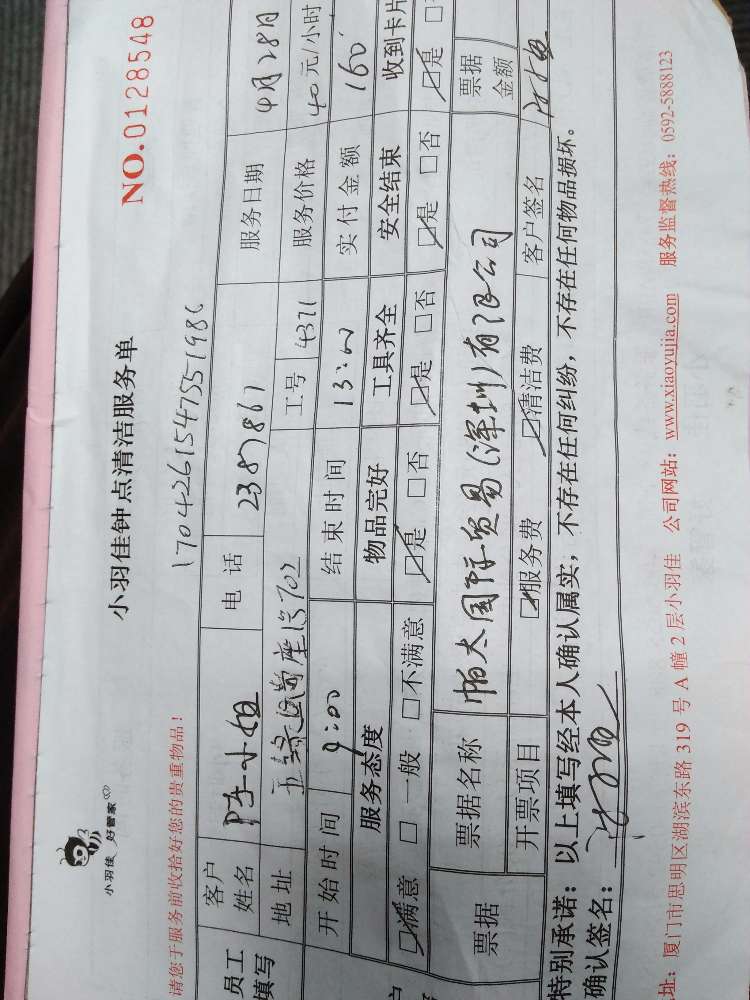 小羽佳 好管家
小羽佳钟点清洁服务单
NO.0128548
请您于服务前收拾好您的贵重物品！
170426154755198
员工填写
客户姓名 陈小姐 电话 2387861 服务日期 4月28日
地址 702 工号 4311 服务价格 40元/小时
开始时间 9:00 结束时间 13:00 实付金额 160
服务态度 物品完好 工具齐全 安全结束 收到卡片
☑满意 □一般 □不满意 ☑是 □否 ☑是 □否 ☑是 □否 ☑是
票据 票据名称 帕太国际贸易(深圳)有限公司 票据金额
开票项目 ☑服务费 ☑清洁费 客户签名
特别承诺：以上填写经本人确认属实，不存在任何纠纷，不存在任何物品损坏。
确认签名：
址：厦门市思明区湖滨东路319号A幢2层小羽佳 公司网站：www.xiaoyujia.com 服务监督热线：0592-5888123